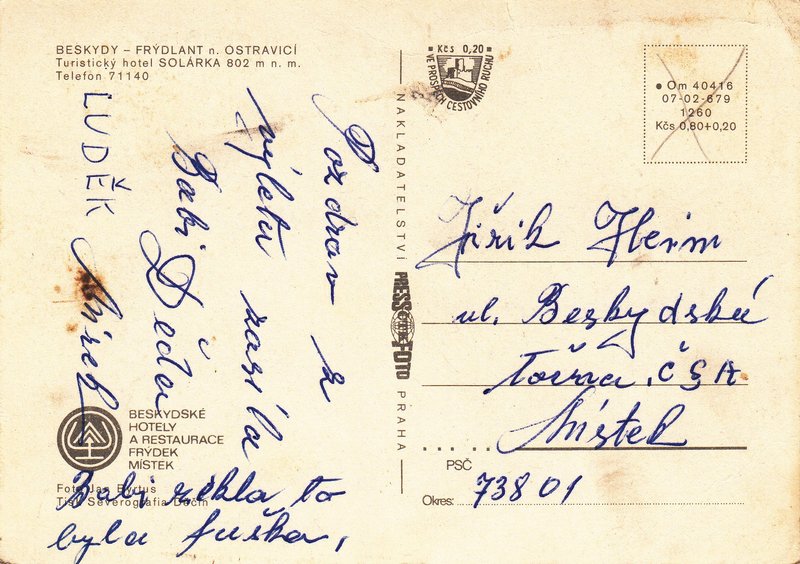 BESKYDY – FRÝDLANT n. OSTRAVICÍ
Turistický hotel SOLÁRKA 802 m n. m.
Telefon 71140
Pozdrav z
výletu zasílá
Babi Děda
LUDĚK Mirek
Babi řekla to
byla fuška,
BESKYDSKÉ
HOTELY
A RESTAURACE
FRÝDEK
MÍSTEK
Foto Jan Byrtus
Tisk Severografia Děčín
NAKLADATELSTVÍ PRESSFOTO PRAHA
Kčs 0,20
VE PROSPĚCH CESTOVNÍHO RUCHU
Om 40416
07-02-679
1260
Kčs 0,80+0,20
Jiřík
ul. Beskydská
ČSA
Místek
PSČ
Okres: 73801